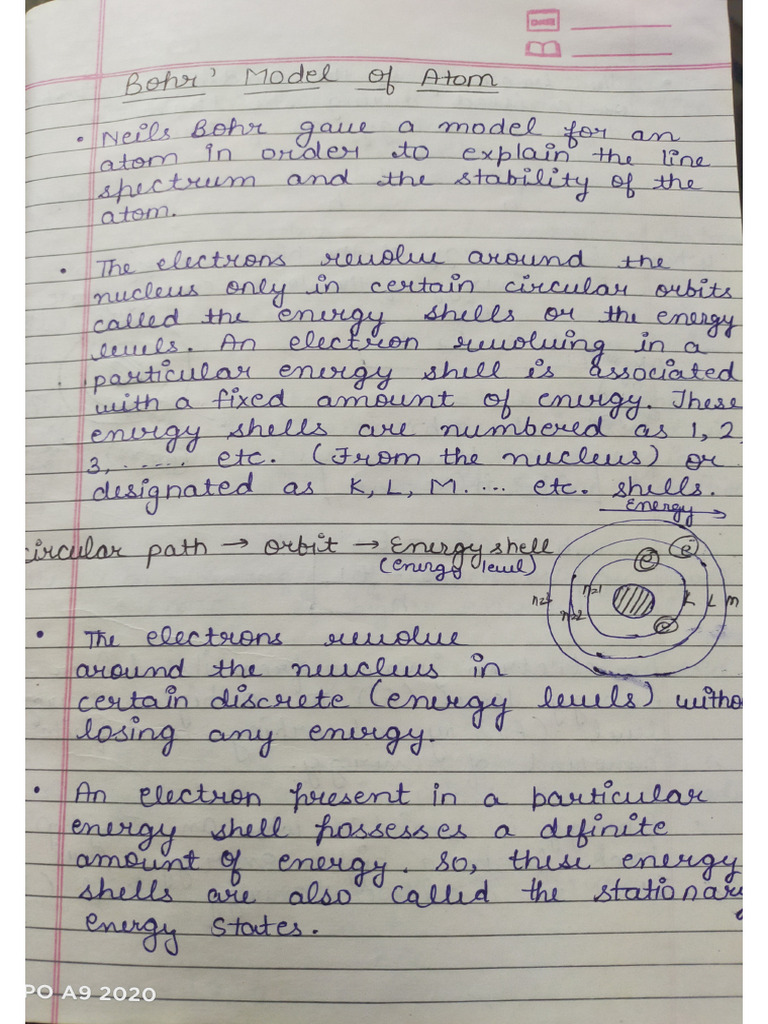 Bohr' Model of Atom
• Neils Bohr gave a model for an
atom in order to explain the line
spectrum and the stability of the
atom.
• The electrons revolve around the
nucleus only in certain circular orbits
called the energy shells or the energy
levels. An electron revolving in a
particular energy shell is associated
with a fixed amount of energy. These
energy shells are numbered as 1, 2
3, ...... etc. (From the nucleus) or
designated as K, L, M.... etc. shells.
Energy
circular path → orbit → Energy shell
(energy level)
e e
n=1 K L M
n=2
e
• The electrons revolve
around the nucleus in
certain discrete (energy levels) witho
losing any energy.
• An electron present in a particular
energy shell possesses a definite
amount of energy. So, these energy
shells are also called the stationary
energy states.
PO A9 2020